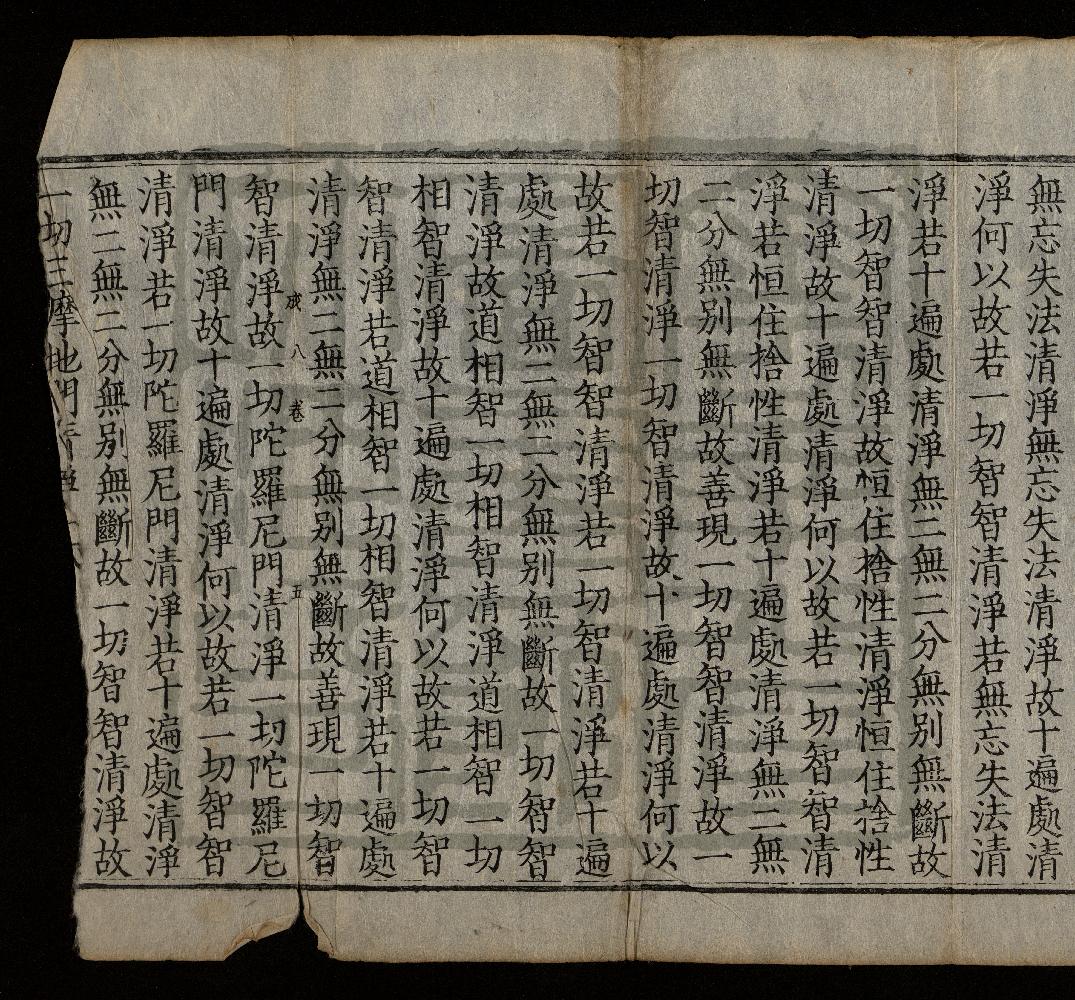 無忘失法清淨無忘失法清淨故十遍處清
淨何以故若一切智智清淨若無忘失法清
淨若十遍處清淨無二無二分無别無斷故
一切智智清淨故恒住捨性清淨恒住捨性
清淨故十遍處清淨何以故若一切智智清
淨若恒住捨性清淨若十遍處清淨無二無
二分無别無斷故善現一切智智清淨故一
切智清淨一切智清淨故十遍處清淨何以
故若一切智智清淨若一切智清淨若十遍
處清淨無二無二分無别無斷故一切智智
清淨故道相智一切相智清淨道相智一切
相智清淨故十遍處清淨何以故若一切智
智清淨若道相智一切相智清淨若十遍處
清淨無二無二分無别無斷故善現一切智
八卷 五
智清淨故一切陀羅尼門清淨一切陀羅尼
門清淨故十遍處清淨何以故若一切智智
清淨若一切陀羅尼門清淨若十遍處清淨
無二無二分無别無斷故一切智智清淨故
一切三摩地門清